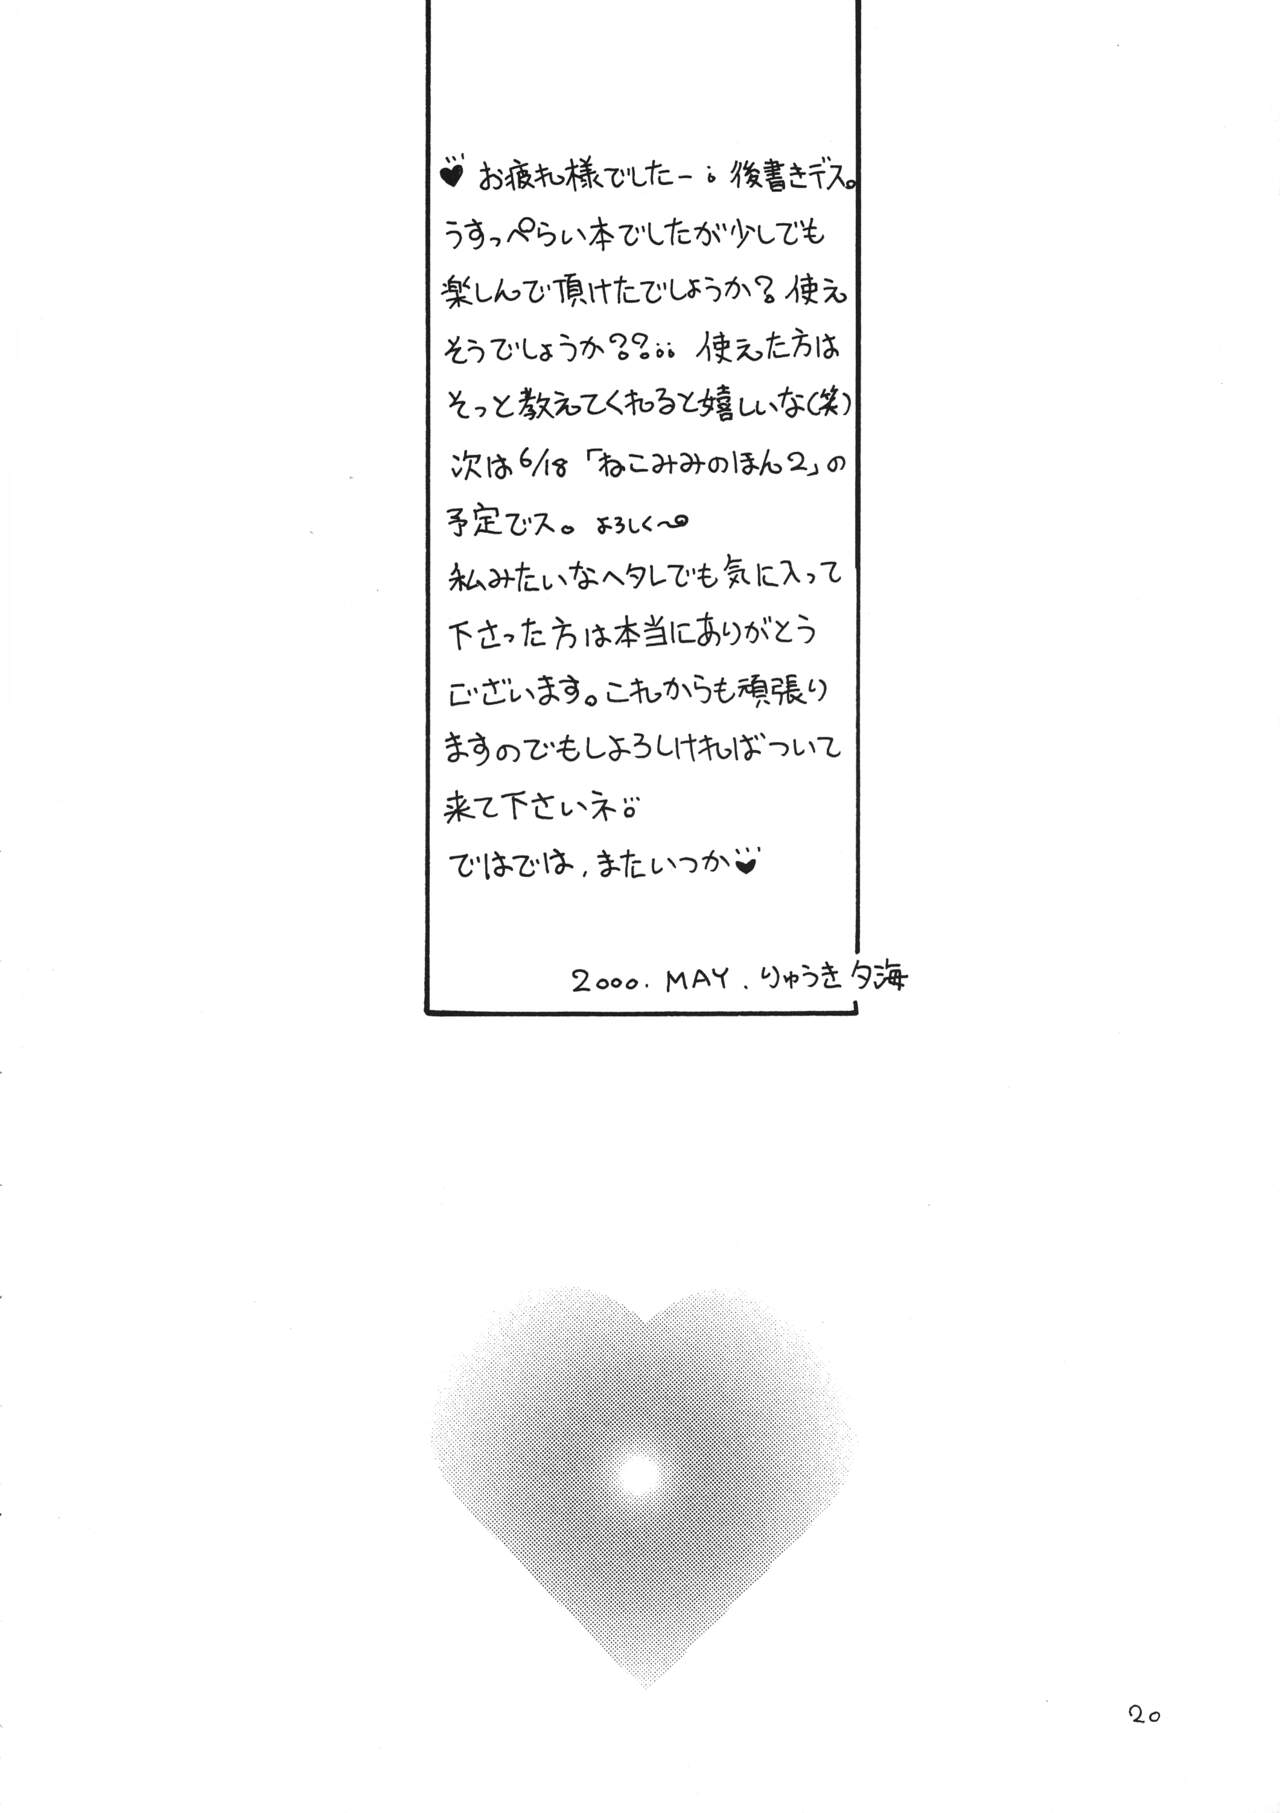 ♥お疲れ様でしたー! 後書きデス。
うすっぺらい本でしたが少しでも
楽しんで頂けたでしょうか? 使え
そうでしょうか??!! 使えた方は
そっと教えてくれると嬉しいな(笑)
次は6/18「ねこみみのほん2」の
予定でス。よろしく〜
私みたいなヘタレでも気に入って
下さった方は本当にありがとう
ございます。これからも頑張り
ますのでもしよろしければついて
来て下さいネ!!
ではでは, またいつか♥
2000. MAY. りゅうき夕海
20